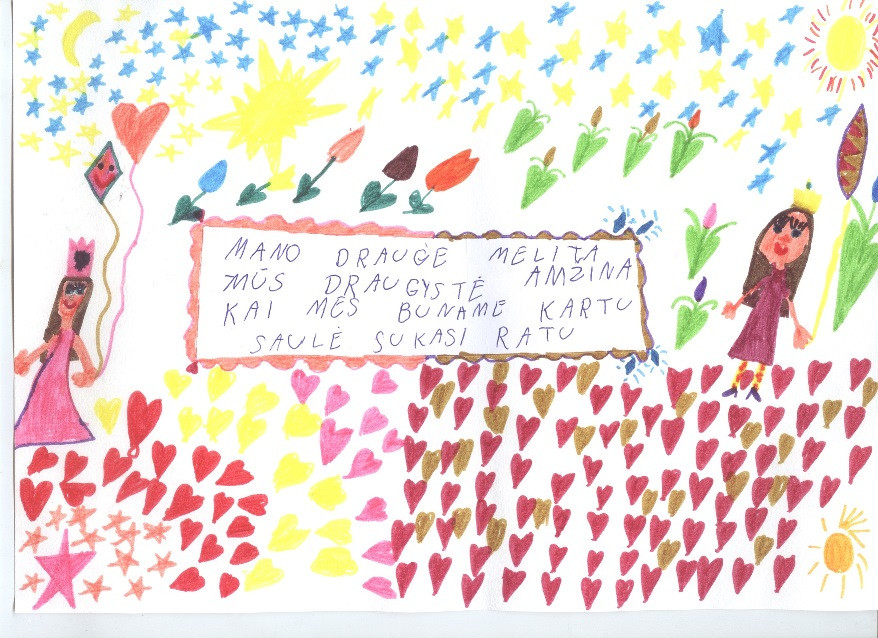 MANO DRAUGĖ MELITA
MŪS DRAUGYSTĖ AMZINA
KAI MĖS BUNAME KARTU
SAULĖ SUKASI RATU